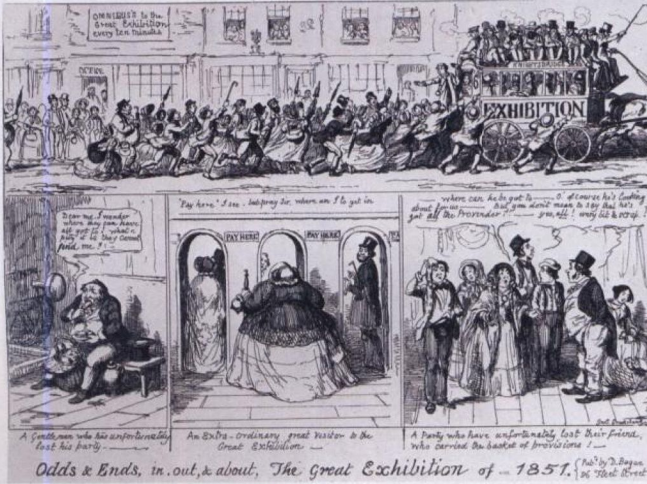 OMNIBUS'S to the
Great Exhibition
every ten minutes
OFFICE
KNIGHTSBRIDGE
EXHIBITION
Dear me, I wonder
where they can have
all got to! what a
pity it is they cannot
find me!!
"Pay here" I see - but pray Sir, where am I to get in
PAY HERE
PAY HERE
where can he be got to O! of course he's looking
about for us but you don't mean to say that he's
got all the Provender!! yes, all! every bit & scrap!
A Gentleman who has unfortunately
lost his party.
An Extra-ordinary great Visitor to the
Great Exhibition
A Party who have unfortunately lost their friend,
who carried the basket of provisions!
Odds & Ends, in, out, & about, The Great Exhibition of 1851.
Pub. by D. Bogue
86 Fleet Street